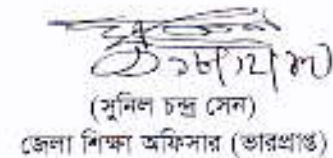 (সুনিল চন্দ্র সেন)
জেলা শিক্ষা অফিসার (ভারপ্রাপ্ত)